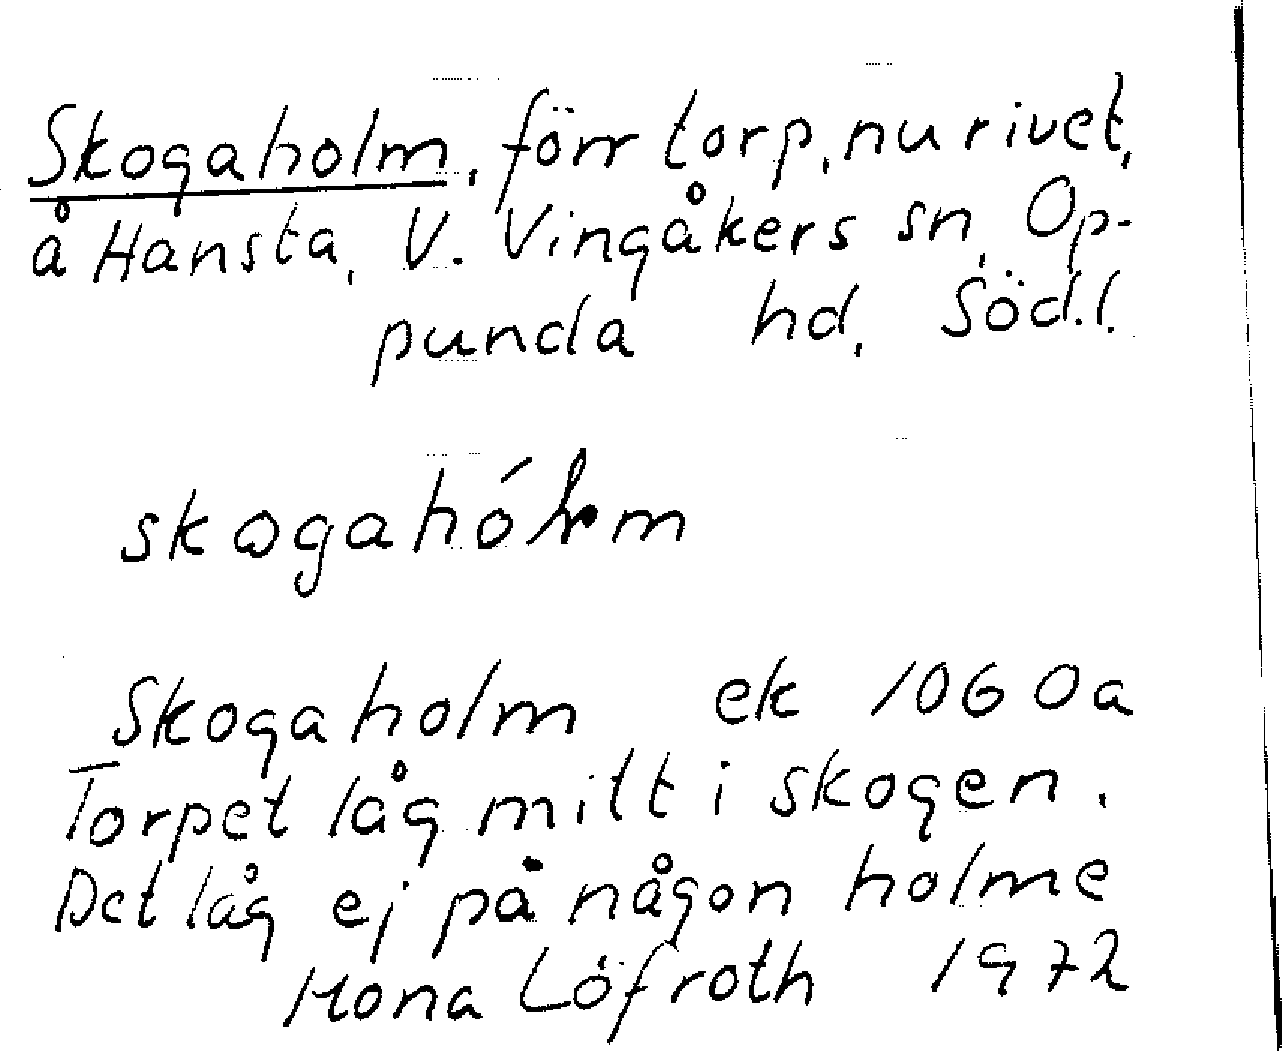 Skogaholm, förr torp, nu rivet,
å Hansta, V. Vingåkers sn, Op-
punda hd, Söd.l.
skogahólm
Skogaholm ek 1060a
Torpet låg mitt i skogen.
Det låg ej på någon holme
Mona Löfroth 1972